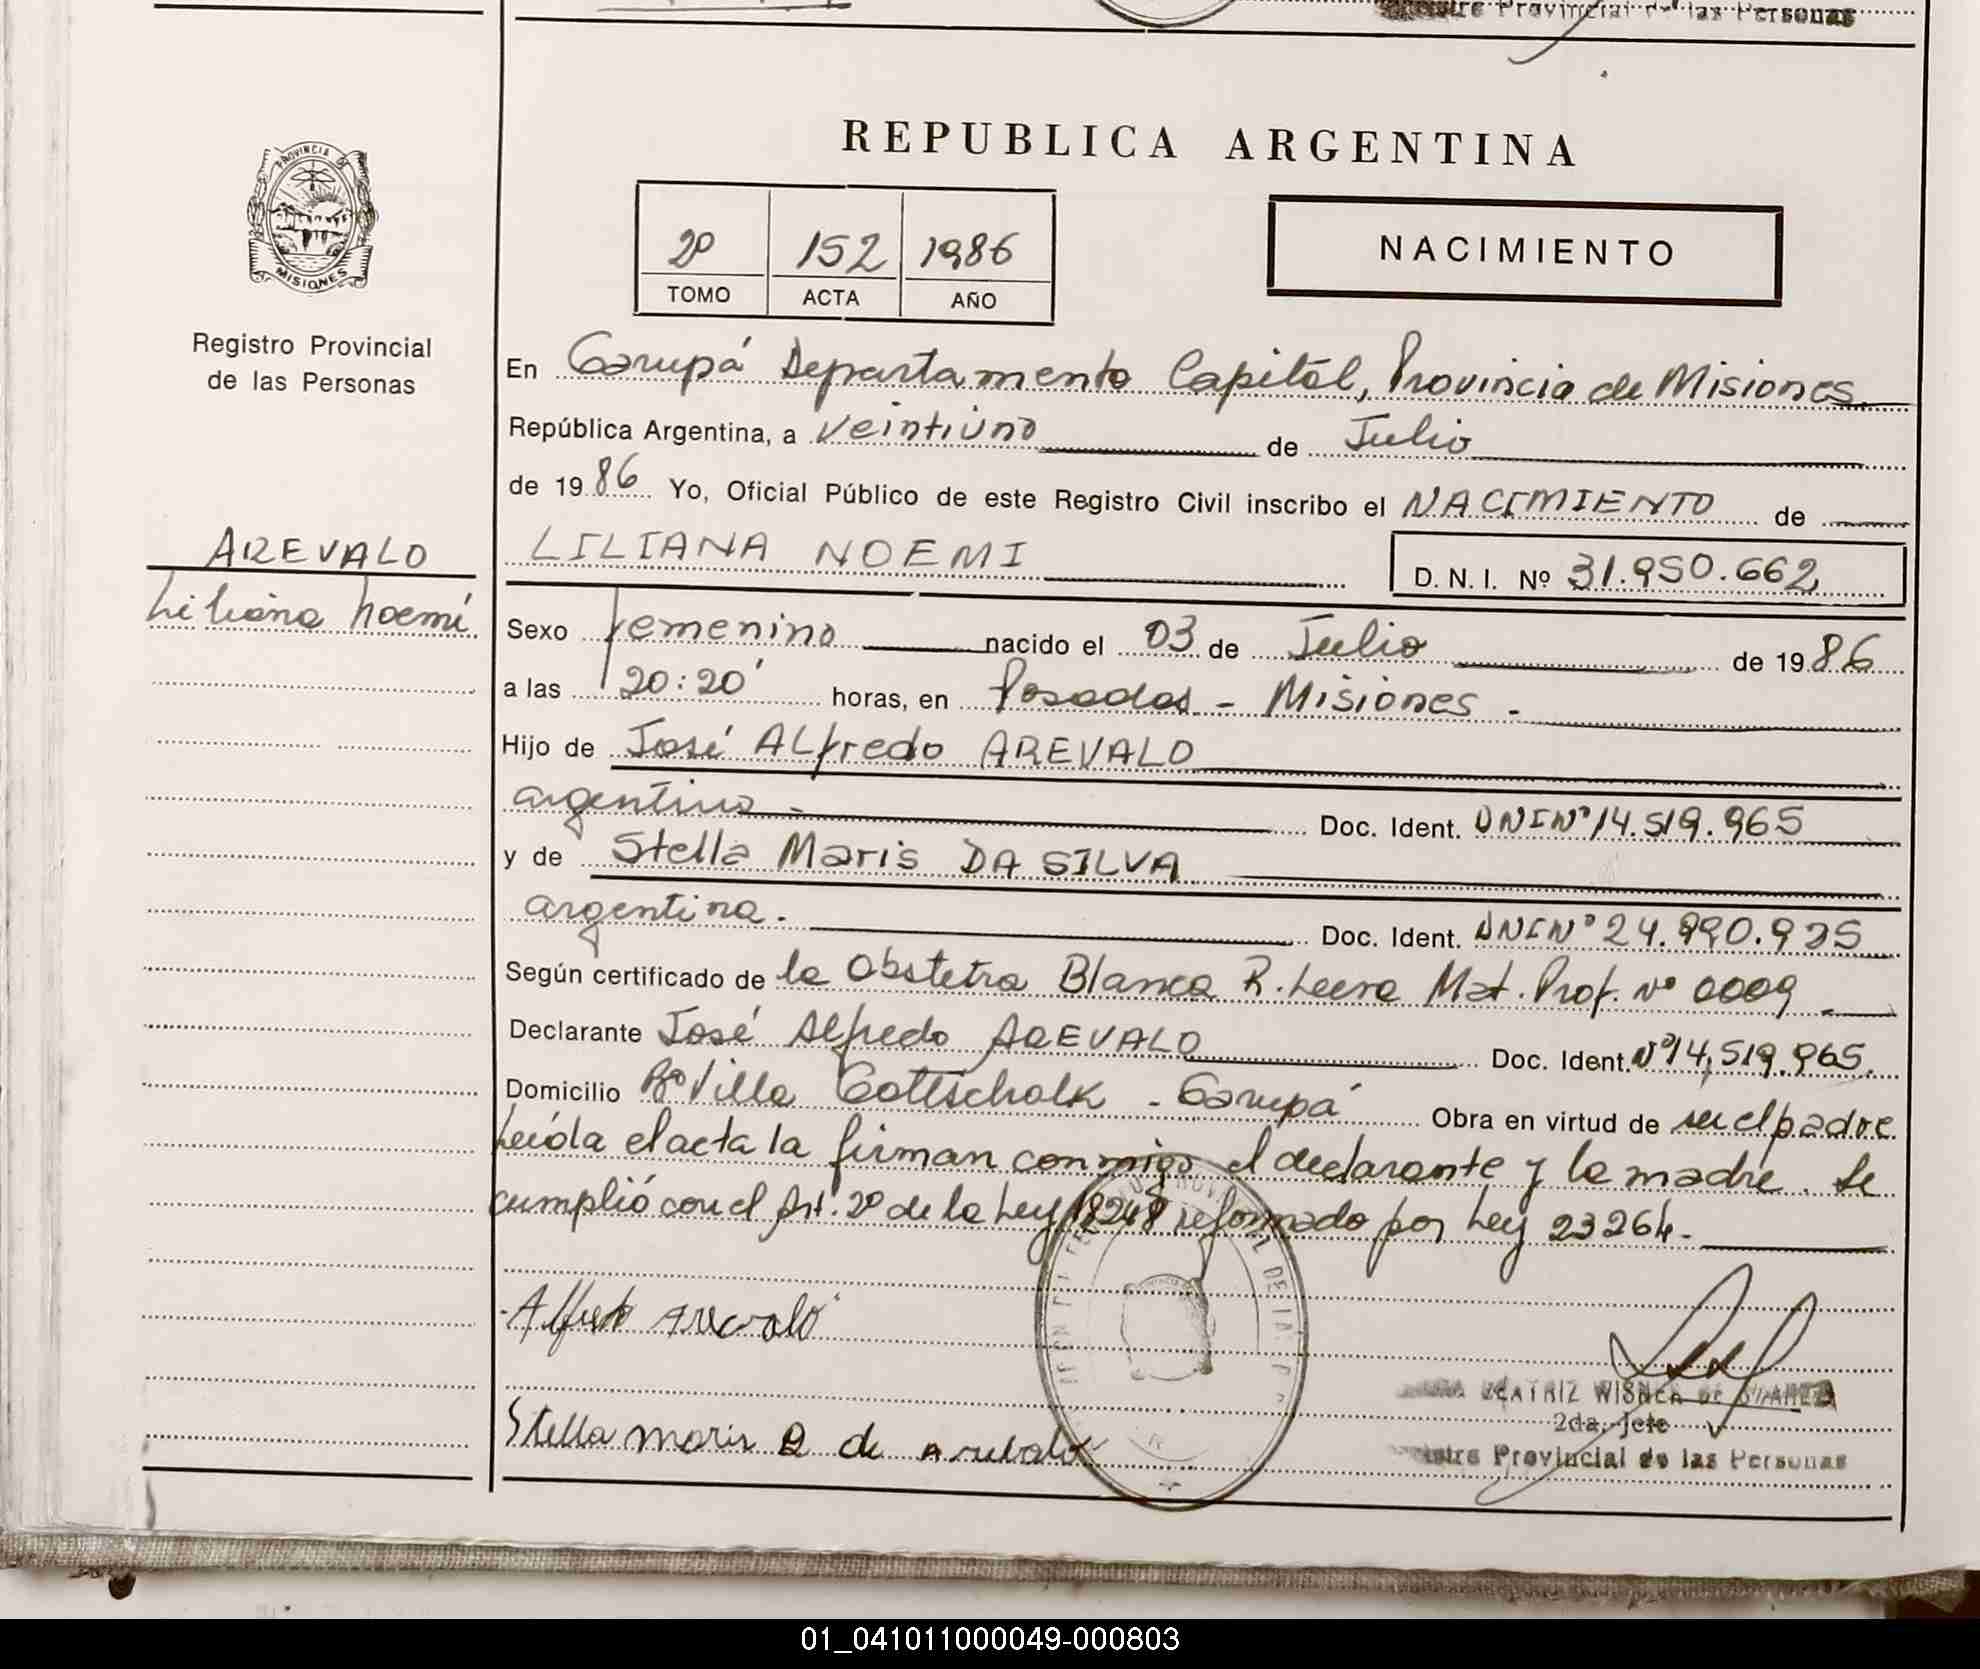 Registro Provincial de las Personas
PROVINCIA DE
MISIONES
Registro Provincial
de las Personas
AREVALO
Liliana Noemí
REPUBLICA ARGENTINA
2º 152 1986
TOMO ACTA AÑO
NACIMIENTO
En Garupá Departamento Capital, Provincia de Misiones.
República Argentina, a veintiuno de Julio
de 1986 Yo, Oficial Público de este Registro Civil inscribo el NACIMIENTO de
LILIANA NOEMI D. N. I. Nº 31.950.662
Sexo femenino nacido el 03 de Julio de 1986
a las 20:20' horas, en Posadas - Misiones -
Hijo de José Alfredo AREVALO
argentino - Doc. Ident. DNI Nº 14.519.965
y de Stella Maris DA SILVA
argentina. Doc. Ident. DNI Nº 24.990.935
Según certificado de la Obstetra Blanca R. Mat. Prof. Nº 0009
Declarante José Alfredo AREVALO Doc. Ident. Nº 14.519.965
Domicilio Bº Villa Gottschalk - Garupá Obra en virtud de ser el padre
Leída el acta la firman conmigo el declarante y la madre. Se
cumplió con el Art. 2º de la Ley 18248 reformado por Ley 23264.-
Alfredo Arevalo
Stella Maris D de Arevalo
BEATRIZ WISNER DE SUAREZ
2da. Jefe
Registro Provincial de las Personas
01_041011000049-000803